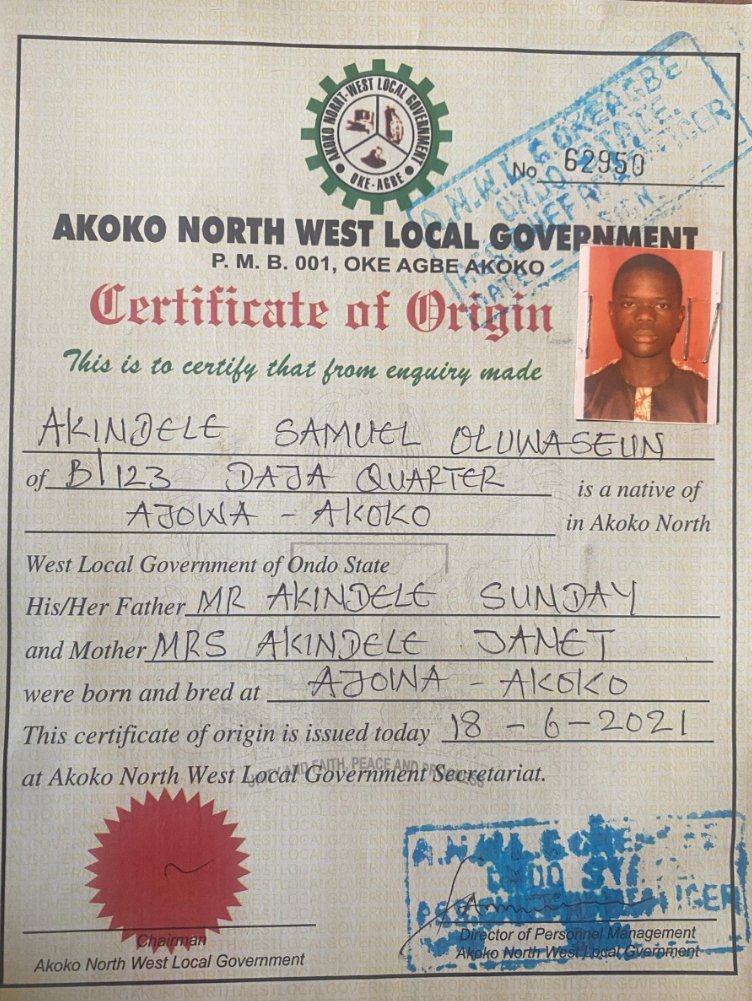 AKOKO NORRT-WEST LOCAL GOVERNMENT
OKE-AGBE
No 62950
AKOKO NORTH WEST LOCAL GOVERNMENT
P. M. B. 001, OKE AGBE AKOKO
Certificate of Origin
This is to certify that from enquiry made
AKINDELE SAMUEL OLUWASEUN
of B/123 DAJA QUARTER is a native of
AJOWA - AKOKO in Akoko North
West Local Government of Ondo State
His/Her Father MR AKINDELE SUNDAY
and Mother MRS AKINDELE JANET
were born and bred at AJOWA - AKOKO
This certificate of origin is issued today 18 - 6 - 2021
at Akoko North West Local Government Secretariat.
FAITH, PEACE AND
Chairman
Akoko North West Local Government
ONDO
Director of Personnel Management
Akoko North West Local Gvernment